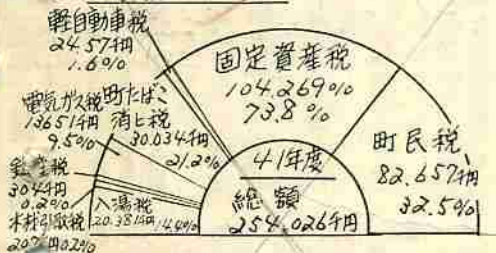 軽自動車税
24.57千円
1.6%
固定資産税
104.269%
73.8%
町民税
82.657千円
32.5%
電気ガス税
13651千円
9.5%
町たばこ
消ヒ税
30.034千円
21.2%
鉱産税
304千円
0.2%
木材引取税
207千円0.2%
入湯税
20.381千円14.4%
41年度
総額
254.026千円